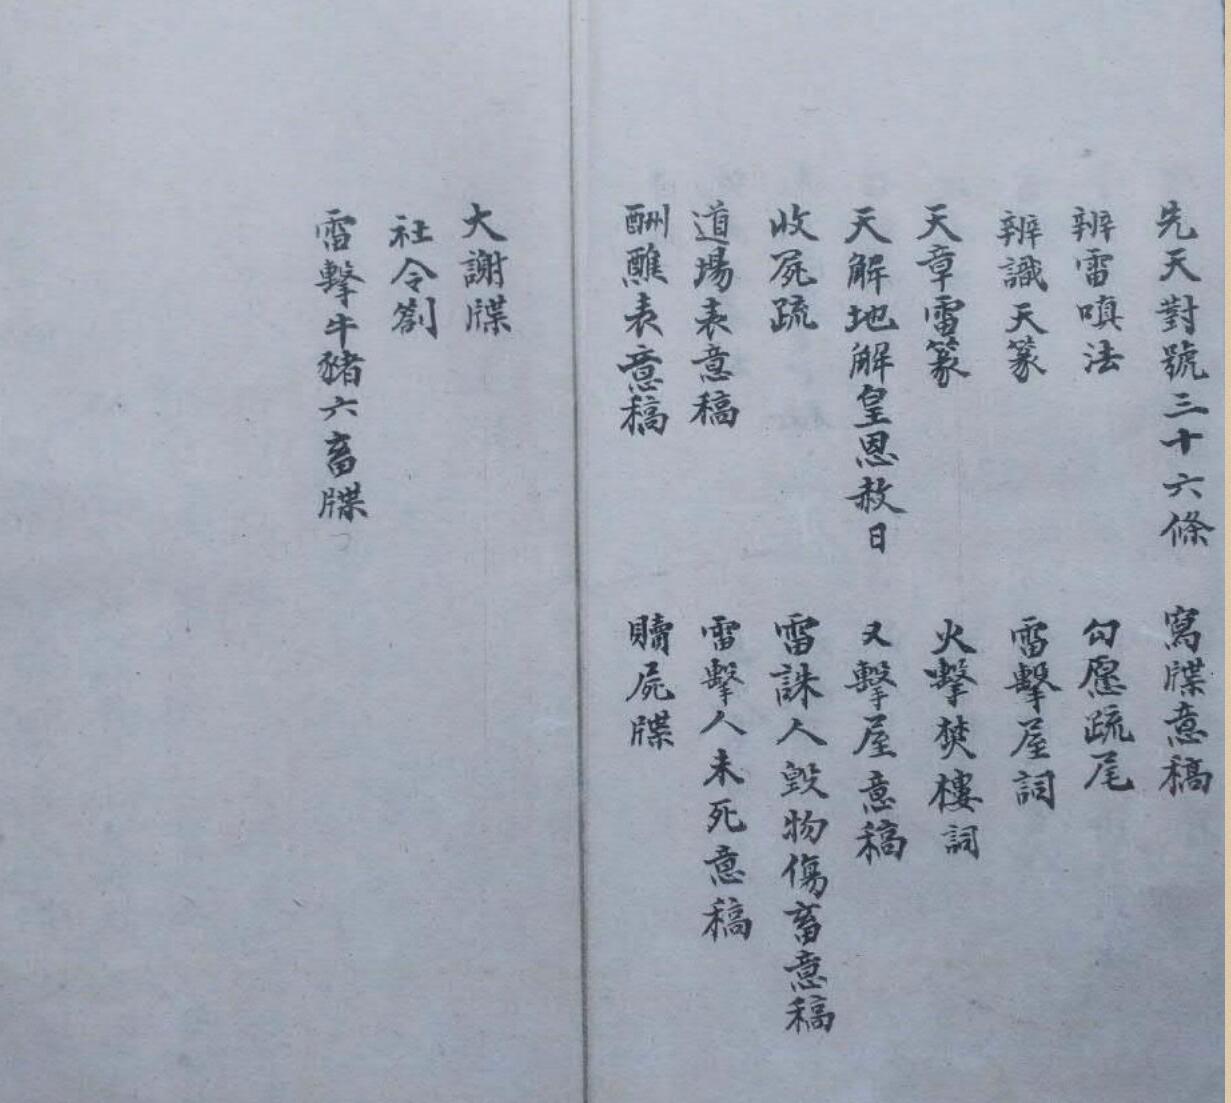 先天對號三十六條
寫牒意稿
辨雷嗔法
勾愿疏尾
辨識天篆
雷擊屋詞
天章雷篆
火擊焚樓詞
天解地解皇恩赦日
又擊屋意稿
收屍疏
雷誅人毀物傷畜意稿
道場表意稿
雷擊人未死意稿
酬醮表意稿
贖屍牒
大謝牒
社令劄
雷擊牛豬六畜牒